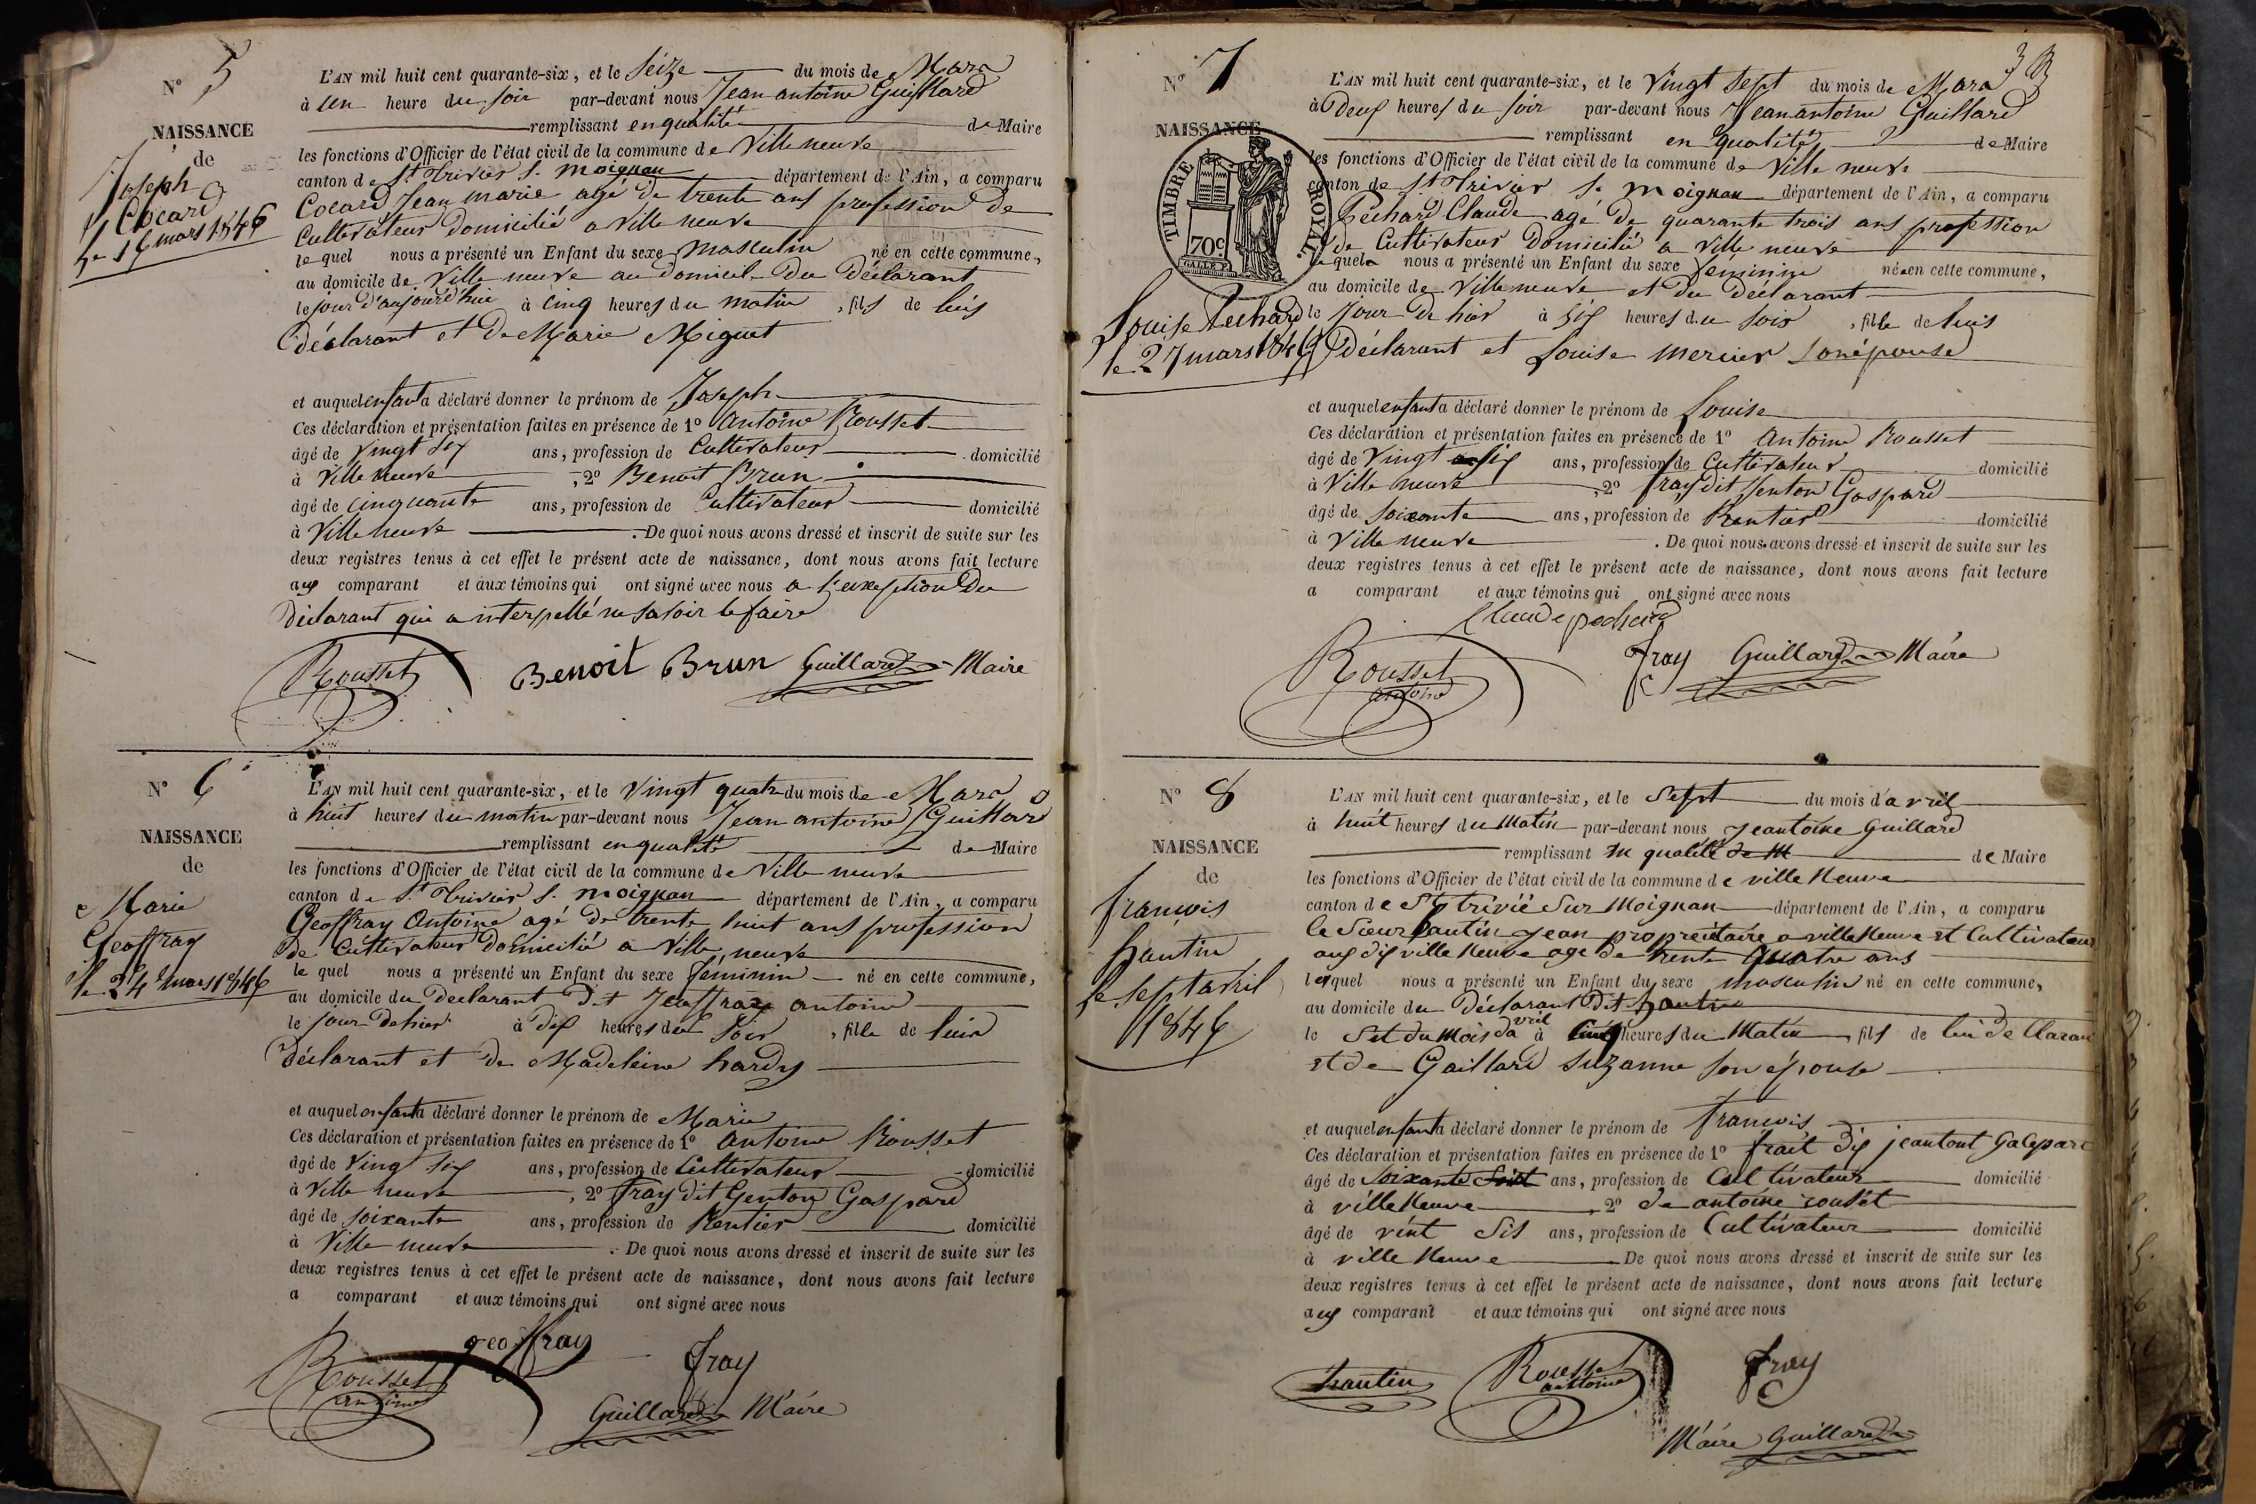 N° 5
NAISSANCE
de
Joseph
Cocard
le 16 mars 1846
L'AN mil huit cent quarante-six, et le Seize du mois de Mars
à un heure du soir par-devant nous Jean antoine Guillard
remplissant en qualité de Maire
les fonctions d'Officier de l'état civil de la commune de Ville neuve
canton de St Trivier S. Moignan département de l'Ain, a comparu
Cocard Jean marie agé de trente ans profession de
Cultivateur domicilié a Ville neuve
le quel nous a présenté un Enfant du sexe masculin né en cette commune,
au domicile de Ville neuve au domicil du déclarant
le jour d'aujourd'hui à cinq heures du matin , fils de lui
déclarant et de Marie Miguet
et auquel enfant a déclaré donner le prénom de Joseph
Ces déclaration et présentation faites en présence de 1° Antoine Rousset
âgé de vingt six ans, profession de Cultivateur domicilié
à Ville neuve , 2° Benoit Brun
âgé de cinquante ans, profession de Cultivateur domicilié
à Ville neuve . De quoi nous avons dressé et inscrit de suite sur les
deux registres tenus à cet effet le présent acte de naissance, dont nous avons fait lecture
aux comparant et aux témoins qui ont signé avec nous a l'exception du
déclarant qui a interpellé ne savoir le faire
Rousset Benoit Brun Guillard Maire
N° 6
NAISSANCE
de
Marie
Geoffray
le 24 mars 1846
L'AN mil huit cent quarante-six, et le vingt quatre du mois de Mars
à huit heures du matin par-devant nous Jean antoine Guillard
remplissant en qualité de Maire
les fonctions d'Officier de l'état civil de la commune de Ville neuve
canton de St Trivier S. moignan département de l'Ain, a comparu
Geoffray Antoine agé de trente huit ans profession
de Cultivateur domicilié a Ville neuve
le quel nous a présenté un Enfant du sexe féminin né en cette commune,
au domicile du declarant dit Jeoffray antoine
le jour de hier à dix heures du soir , fille de lui
déclarant et de Madeleine hardy
et auquel enfant a déclaré donner le prénom de Marie
Ces déclaration et présentation faites en présence de 1° antoine Rousset
âgé de Vingt six ans, profession de Cultivateur domicilié
à Ville neuve , 2° fray dit Genton Gaspard
âgé de soixante ans, profession de Rentier domicilié
à Ville neuve . De quoi nous avons dressé et inscrit de suite sur les
deux registres tenus à cet effet le présent acte de naissance, dont nous avons fait lecture
a comparant et aux témoins qui ont signé avec nous
geoffray
Rousset antoine fray
Guillard Maire
N° 7
NAISSANCE
TIMBRE ROYAL
70c
Louise Pechard
le 27 mars 1846
L'AN mil huit cent quarante-six, et le Vingt sept du mois de Mars
à Deux heures du soir par-devant nous Jean antoine Guillard
remplissant en qualité de Maire
les fonctions d'Officier de l'état civil de la commune de Ville neuve
canton de St Trivier S. moignan département de l'Ain, a comparu
Péchard Claude agé de quarante trois ans profession
de Cultivateur domicilié a Ville neuve
quel nous a présenté un Enfant du sexe féminin né en cette commune,
au domicile de Ville neuve et du déclarant
le Jour de hier à six heures du soir , fille de lui
déclarant et Louise mercier son épouse
et auquel enfant a déclaré donner le prénom de Louise
Ces déclaration et présentation faites en présence de 1° Antoine Rousset
âgé de Vingt six ans, profession de Cultivateur domicilié
à Ville neuve , 2° fray dit Jenton Gaspard
âgé de soixante ans, profession de Rentier domicilié
à Ville neuve . De quoi nous avons dressé et inscrit de suite sur les
deux registres tenus à cet effet le présent acte de naissance, dont nous avons fait lecture
a comparant et aux témoins qui ont signé avec nous
Claude pechard
Rousset antoine fray Guillard Maire
N° 8
NAISSANCE
de
francois
hantin
le sept avril
1846
L'AN mil huit cent quarante-six, et le Sept du mois d'avril
à huit heures du Matin par-devant nous Jeantoine Guillard
remplissant en qualité de M de Maire
les fonctions d'Officier de l'état civil de la commune de ville Neuve
canton de St trivié Sur Moignan département de l'Ain, a comparu
le Sieur hantin jean propriétaire a ville Neuve et Cultivateur
aux dis ville Neuve age de trente Quatre ans
lequel nous a présenté un Enfant du sexe masculin né en cette commune,
au domicile du Déclarant Dit hantin
le Set du Mois da vril à cinq heures du Matin , fils de lui de Claran
et de Gaillard suzanne son épouse
et auquel enfant a déclaré donner le prénom de francois
Ces déclaration et présentation faites en présence de 1° frait dis jeantont Gacepare
âgé de soixante ans, profession de Cul tivateur domicilié
à ville Neuve , 2° de antoine rousét
âgé de vint Sis ans, profession de Cultivateur domicilié
à ville Neuve . De quoi nous avons dressé et inscrit de suite sur les
deux registres tenus à cet effet le présent acte de naissance, dont nous avons fait lecture
aux comparant et aux témoins qui ont signé avec nous
hantin Rousset antoine fray
Maire Guillard